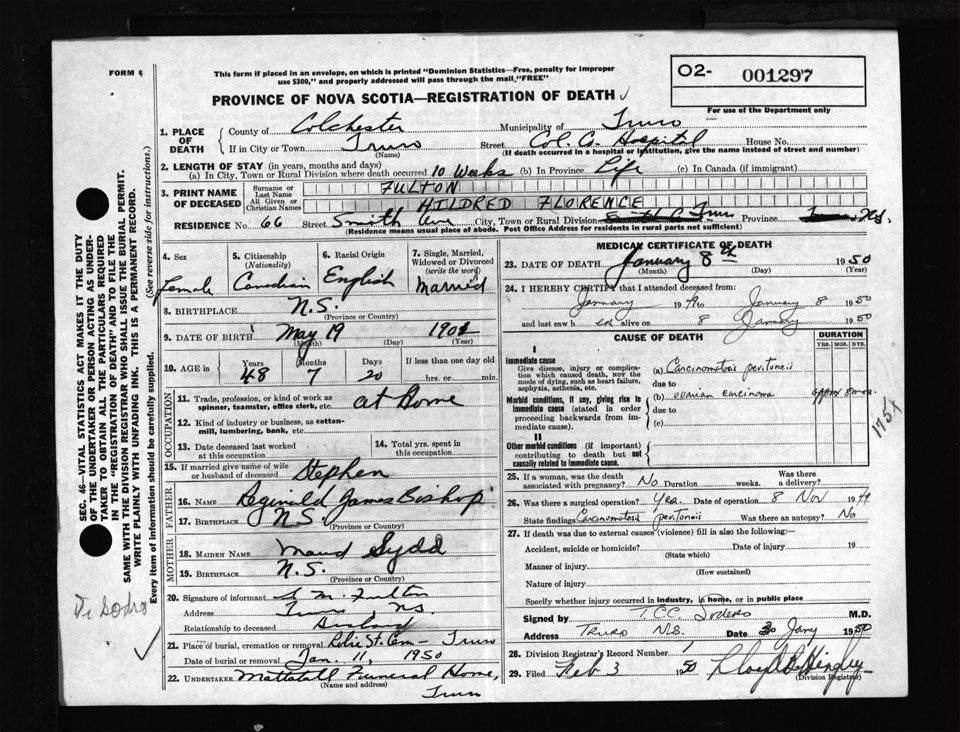 FORM 6
This form if placed in an envelope, on which is printed "Dominion Statistics—Free, penalty for improper
use $300," and properly addressed will pass through the mail "FREE"
O2- 001297
For use of the Department only
PROVINCE OF NOVA SCOTIA—REGISTRATION OF DEATH
1. PLACE OF DEATH
County of Colchester Municipality of Truro
If in City or Town Truro Street Col. Co. Hospital House No.
(Name) (If death occurred in a hospital or institution, give the name instead of street and number)
2. LENGTH OF STAY (in years, months and days)
(a) In City, Town or Rural Division where death occurred 10 Weeks (b) In Province Life (c) In Canada (if immigrant)
3. PRINT NAME OF DECEASED
Surname or Last Name FULTON
All Given or Christian Names HILDRED FLORENCE
RESIDENCE No. 66 Street Smith Ave City, Town or Rural Division Truro Province N.S.
(Residence means usual place of abode. Post Office Address for residents in rural parts not sufficient)
4. Sex Female
5. Citizenship (Nationality) Canadian
6. Racial Origin English
7. Single, Married, Widowed or Divorced (write the word) Married
8. BIRTHPLACE N.S.
(Province or Country)
9. DATE OF BIRTH May 19 1901
(Month) (Day) (Year)
10. AGE in Years 48 Months 7 Days 20 If less than one day old hrs. or min.
OCCUPATION
11. Trade, profession, or kind of work as spinner, teamster, office clerk, etc. at Home
12. Kind of industry or business, as cotton-mill, lumbering, bank, etc.
13. Date deceased last worked at this occupation
14. Total yrs. spent in this occupation
15. If married give name of wife or husband of deceased Stephen
FATHER
16. NAME Reginald James Bishop
17. BIRTHPLACE N.S.
(Province or Country)
MOTHER
18. MAIDEN NAME Maud Sydd
19. BIRTHPLACE N.S.
(Province or Country)
20. Signature of informant S. M. Fulton
Address Truro, N.S.
Relationship to deceased Husband
21. Place of burial, cremation or removal Robie St. Cem - Truro
Date of burial or removal Jan. 11, 1950
22. UNDERTAKER Mattatall Funeral Home,
(Name and address) Truro
MEDICAL CERTIFICATE OF DEATH
23. DATE OF DEATH January 8th 1950
(Month) (Day) (Year)
24. I HEREBY CERTIFY that I attended deceased from:
January 1949 to January 8 1950
and last saw her alive on 8 January 1950
CAUSE OF DEATH
DURATION
YRS. MOS. DYS.
I
Immediate cause
Give disease, injury or complication which caused death, NOT the mode of dying, such as heart failure, asphyxia, asthenia, etc.
(a) Carcinomatosis peritoneii
due to
Morbid conditions, if any, giving rise to immediate cause (stated in order proceeding backwards from immediate cause).
(b) ovarian carcinoma approx 8 mos.
due to
(c)
II
Other morbid conditions (if important) contributing to death but not causally related to immediate cause.
175x
25. If a woman, was the death associated with pregnancy? No Duration weeks. Was there a delivery?
26. Was there a surgical operation? Yes. Date of operation 8 Nov 1949
State findings Carcinomatosis peritoneii Was there an autopsy? No
27. If death was due to external causes (violence) fill in also the following:—
Accident, suicide or homicide? Date of injury 19
(State which)
Manner of injury
(How sustained)
Nature of injury
Specify whether injury occurred in industry, in home, or in public place
Signed by M.D.
Address Truro N.S. Date 30 Jany 1950
28. Division Registrar's Record Number 1
29. Filed Feb 3 1950
(Division Registrar)
SEC. 46—VITAL STATISTICS ACT MAKES IT THE DUTY
OF THE UNDERTAKER OR PERSON ACTING AS UNDER-
TAKER TO OBTAIN ALL THE PARTICULARS REQUIRED
IN THE "REGISTRATION OF DEATH" AND TO FILE THE
SAME WITH THE DIVISION REGISTRAR WHO SHALL ISSUE THE BURIAL PERMIT.
WRITE PLAINLY WITH UNFADING INK. THIS IS A PERMANENT RECORD.
Every item of information should be carefully supplied. (See reverse side for instructions.)